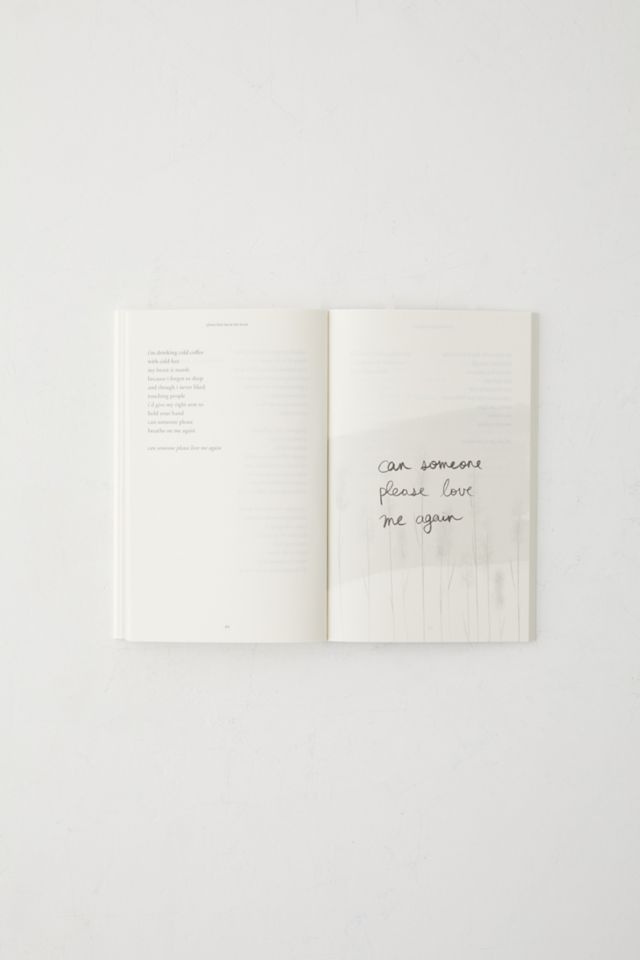 please love me at my worst
i'm drinking cold coffee
with cold
my is numb
because i forgot to sleep
and though i never liked
touching people
i'd give my right arm to
hold your hand
can someone please
breathe on me again
can someone please love me again
can someone
please love
me again